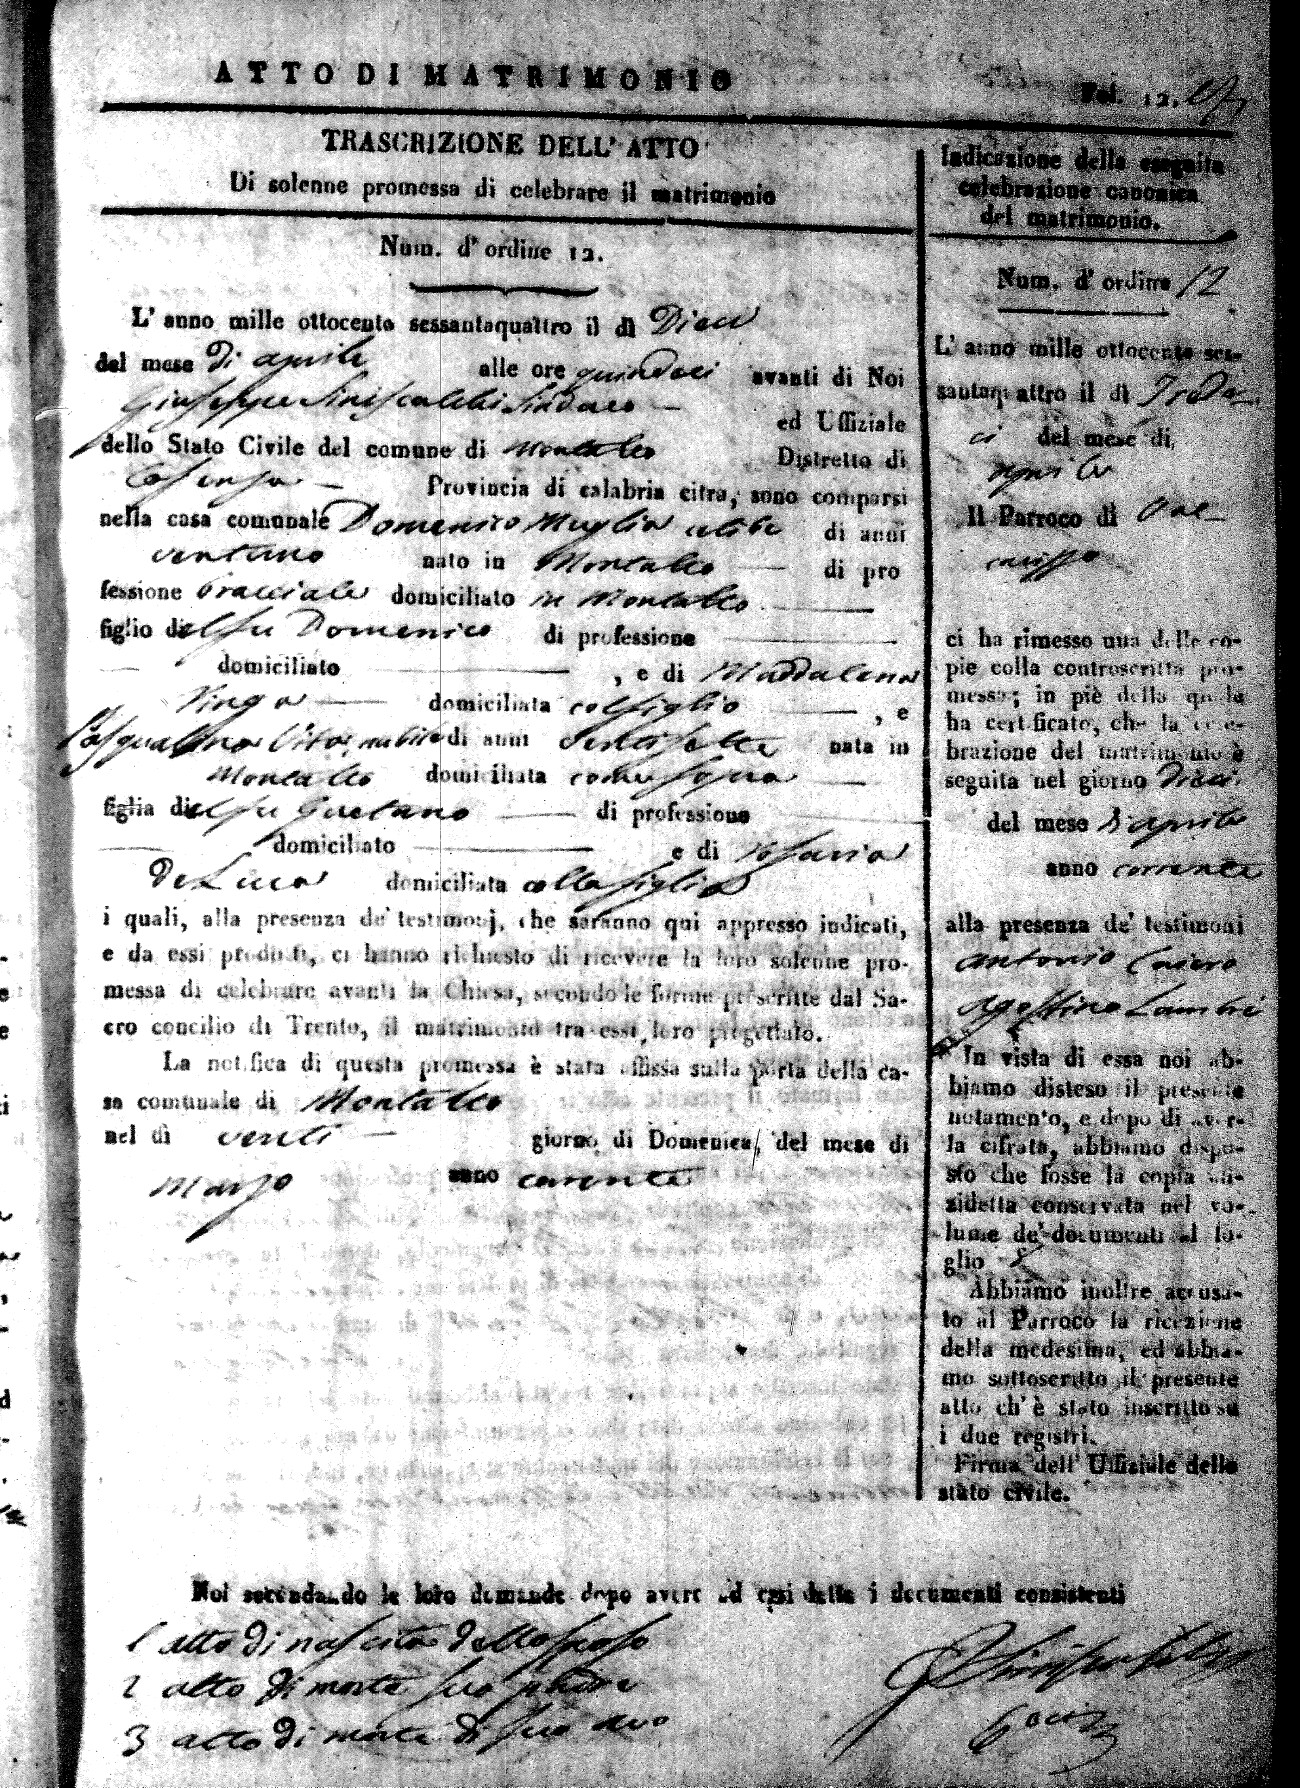 ATTO DI MATRIMONIO
Fol. 12.
TRASCRIZIONE DELL' ATTO
Di solenne promessa di celebrare il matrimonio
Num. d' ordine 12.
L' anno mille ottocento sessantaquattro il dì Dieci
del mese di aprile alle ore quindeci avanti di Noi
Giuseppe Siniscalchi Sindaco ed Uffiziale
dello Stato Civile del comune di Montalto Distretto di
Cosenza Provincia di calabria citra, sono comparsi
nella casa comunale Domenico Muglia celibe di anni
ventuno nato in Montalto di pro
fessione bracciale domiciliato in Montalto
figlio del fu Domenico di professione
domiciliato , e di Maddalena
Vinga domiciliata col figlio , e
Pasqualina Vito nubile di anni ventisette nata in
Montalto domiciliata come sopra
figlia del fu Gaetano di professione
domiciliato e di Rosaria
De Luca domiciliata colla figlia
i quali, alla presenza de' testimonj, che saranno qui appresso indicati,
e da essi prodotti, ci hanno richiesto di ricevere la loro solenne pro-
messa di celebrare avanti la Chiesa, secondo le forme prescritte dal Sa-
cro concilio di Trento, il matrimonio tra essi loro progettato.
La notifica di questa promessa è stata affissa sulla porta della ca-
sa comunale di Montalto
nel dì venti giorno di Domenica, del mese di
Marzo anno corrente
Indicazione della seguita
celebrazione canonica
del matrimonio.
Num. d' ordine 12
L' anno mille ottocento ses-
santaquattro il dì Tredi-
ci del mese di
aprile
Il Parroco di
ci ha rimesso una delle co-
pie colla controscritta pro-
messa; in piè della quale
ha certificato, che la cele-
brazione del matrimonio è
seguita nel giorno Dieci
del mese di aprile
anno corrente
alla presenza de' testimoni
Antonio
Agostino
In vista di essa noi ab-
biamo disteso il presente
notamento, e dopo di aver-
la cifrata, abbiamo dispo-
sto che fosse la copia an-
zidetta conservata nel vo-
lume de' documenti al fo-
glio
Abbiamo inoltre accusa-
to al Parroco la ricezione
della medesima, ed abbia-
mo sottoscritto il presente
atto ch' è stato inscritto su
i due registri.
Firma dell' Uffiziale dello
stato civile.
Noi secondando le loro demande dopo avere ad essi letto i documenti consistenti
1 atto di nascita dello sposo
2 atto di morte suo padre
3 atto di morte di suo avo